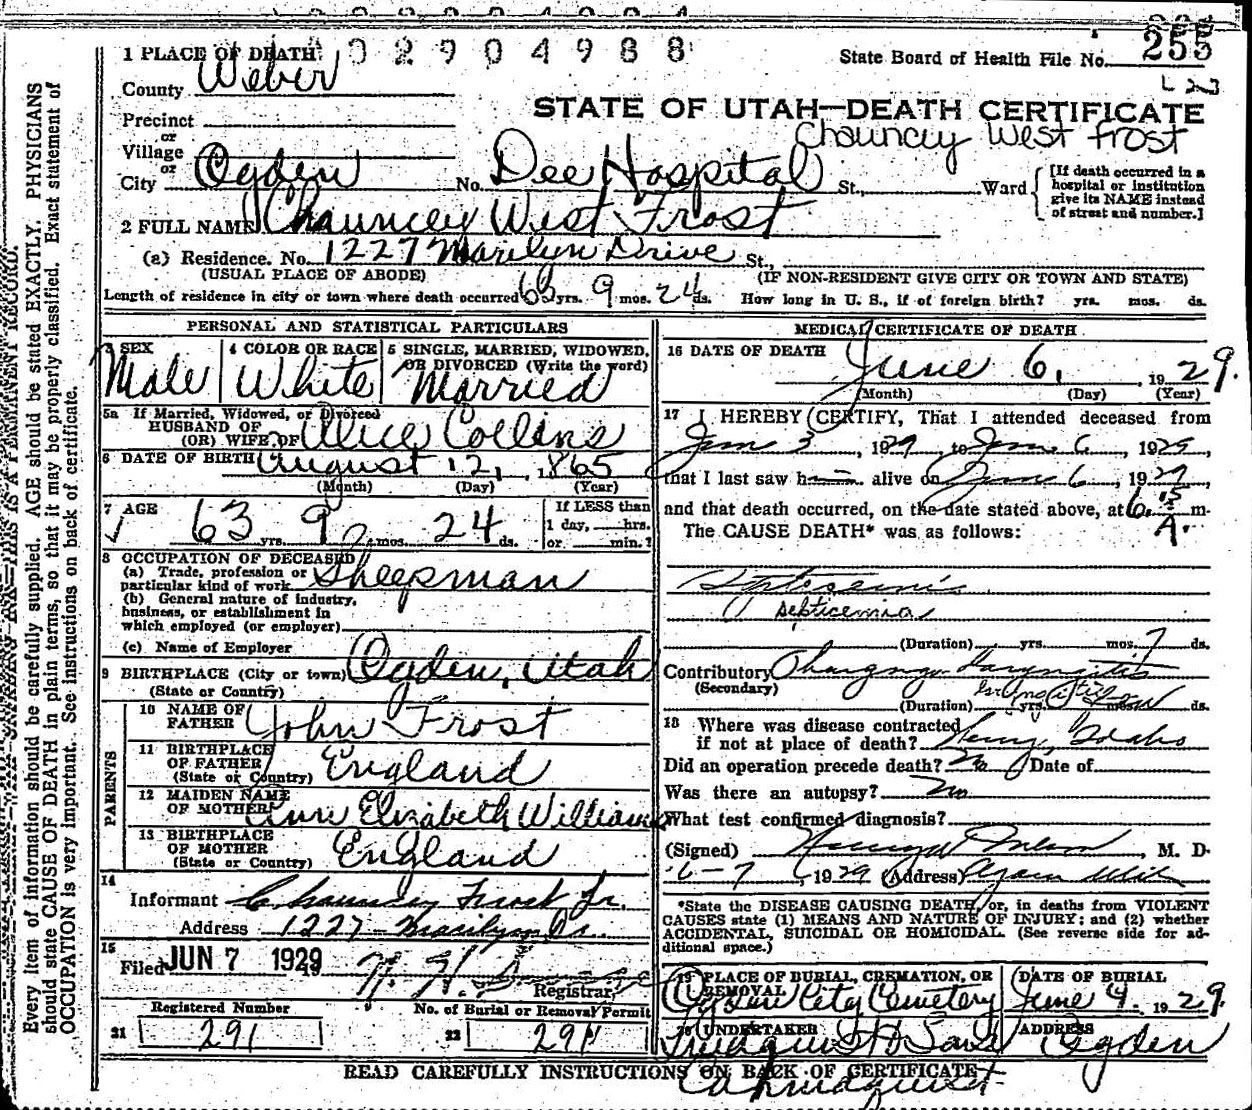 1 PLACE OF DEATH 02904988
State Board of Health File No. 255
County Weber
STATE OF UTAH—DEATH CERTIFICATE
Precinct
Chauncey West Frost
or
Village
or
City Ogden No. Dee Hospital St., Ward
[If death occurred in a hospital or institution give its NAME instead of street and number.]
2 FULL NAME Chauncey West Frost
(a) Residence. No. 1227 Marilyn Drive St.,
(USUAL PLACE OF ABODE) (IF NON-RESIDENT GIVE CITY OR TOWN AND STATE)
Length of residence in city or town where death occurred 63 yrs. 9 mos. 24 ds. How long in U. S., if of foreign birth? yrs. mos. ds.
PERSONAL AND STATISTICAL PARTICULARS
3 SEX 4 COLOR OR RACE 5 SINGLE, MARRIED, WIDOWED,
OR DIVORCED (Write the word)
Male White Married
5a If Married, Widowed, or Divorced
HUSBAND OF
(OR) WIFE OF Alice Collins
6 DATE OF BIRTH August 12, 1865
(Month) (Day) (Year)
7 AGE 63 yrs. 9 mos. 24 ds.
If LESS than
1 day, hrs.
or min.?
8 OCCUPATION OF DECEASED
(a) Trade, profession or
particular kind of work Sheepman
(b) General nature of industry,
business, or establishment in
which employed (or employer)
(c) Name of Employer
9 BIRTHPLACE (City or town) Ogden, Utah
(State or Country)
PARENTS
10 NAME OF
FATHER John Frost
11 BIRTHPLACE
OF FATHER England
(State or Country)
12 MAIDEN NAME
OF MOTHER Ann Elizabeth Williams
13 BIRTHPLACE
OF MOTHER England
(State or Country)
14
Informant Chauncey Frost Jr.
Address 1227 Marilyn Dr.
15
Filed JUN 7 1929
Registrar
Registered Number No. of Burial or Removal Permit
21 291 22 291
MEDICAL CERTIFICATE OF DEATH
16 DATE OF DEATH June 6, 1929.
(Month) (Day) (Year)
17 I HEREBY CERTIFY, That I attended deceased from
June 3, 1929, to June 6, 1929,
that I last saw h alive on June 6, 1929,
and that death occurred, on the date stated above, at 6.15 A. m.
The CAUSE DEATH* was as follows:
Septicemia
(Duration) yrs. mos. 7 ds.
Contributory Laryngitis
(Secondary)
(Duration) yrs. mos. ds.
18 Where was disease contracted
if not at place of death? Idaho
Did an operation precede death? No Date of
Was there an autopsy? No
What test confirmed diagnosis?
(Signed) , M. D.
6-7, 1929 (Address) Ogden Utah
*State the DISEASE CAUSING DEATH, or, in deaths from VIOLENT
CAUSES state (1) MEANS AND NATURE OF INJURY; and (2) whether
ACCIDENTAL, SUICIDAL OR HOMICIDAL. (See reverse side for ad-
ditional space.)
19 PLACE OF BURIAL, CREMATION, OR
REMOVAL
Ogden City Cemetery
DATE OF BURIAL
June 9. 1929.
20 UNDERTAKER
ADDRESS
Ogden
READ CAREFULLY INSTRUCTIONS ON BACK OF CERTIFICATE
Every item of information should be carefully supplied. AGE should be stated EXACTLY. PHYSICIANS
should state CAUSE OF DEATH in plain terms, so that it may be properly classified. Exact statement of
OCCUPATION is very important. See instructions on back of certificate.